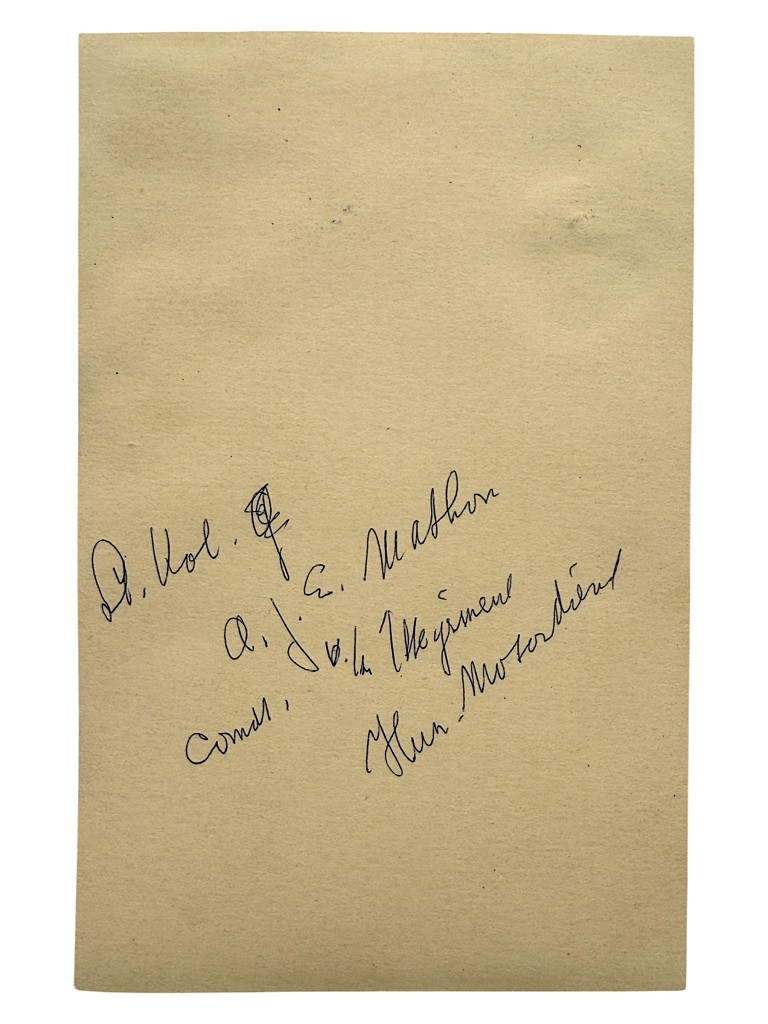 Lt. Kol.
A. J. E. Mathon
Comdt. v/h Regiment
Huz. Motordienst